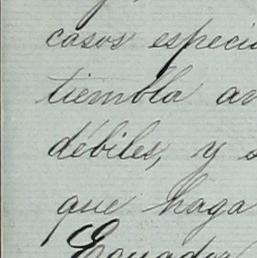 casos especi
tiembla an
débiles, y
que haga
Ecuador